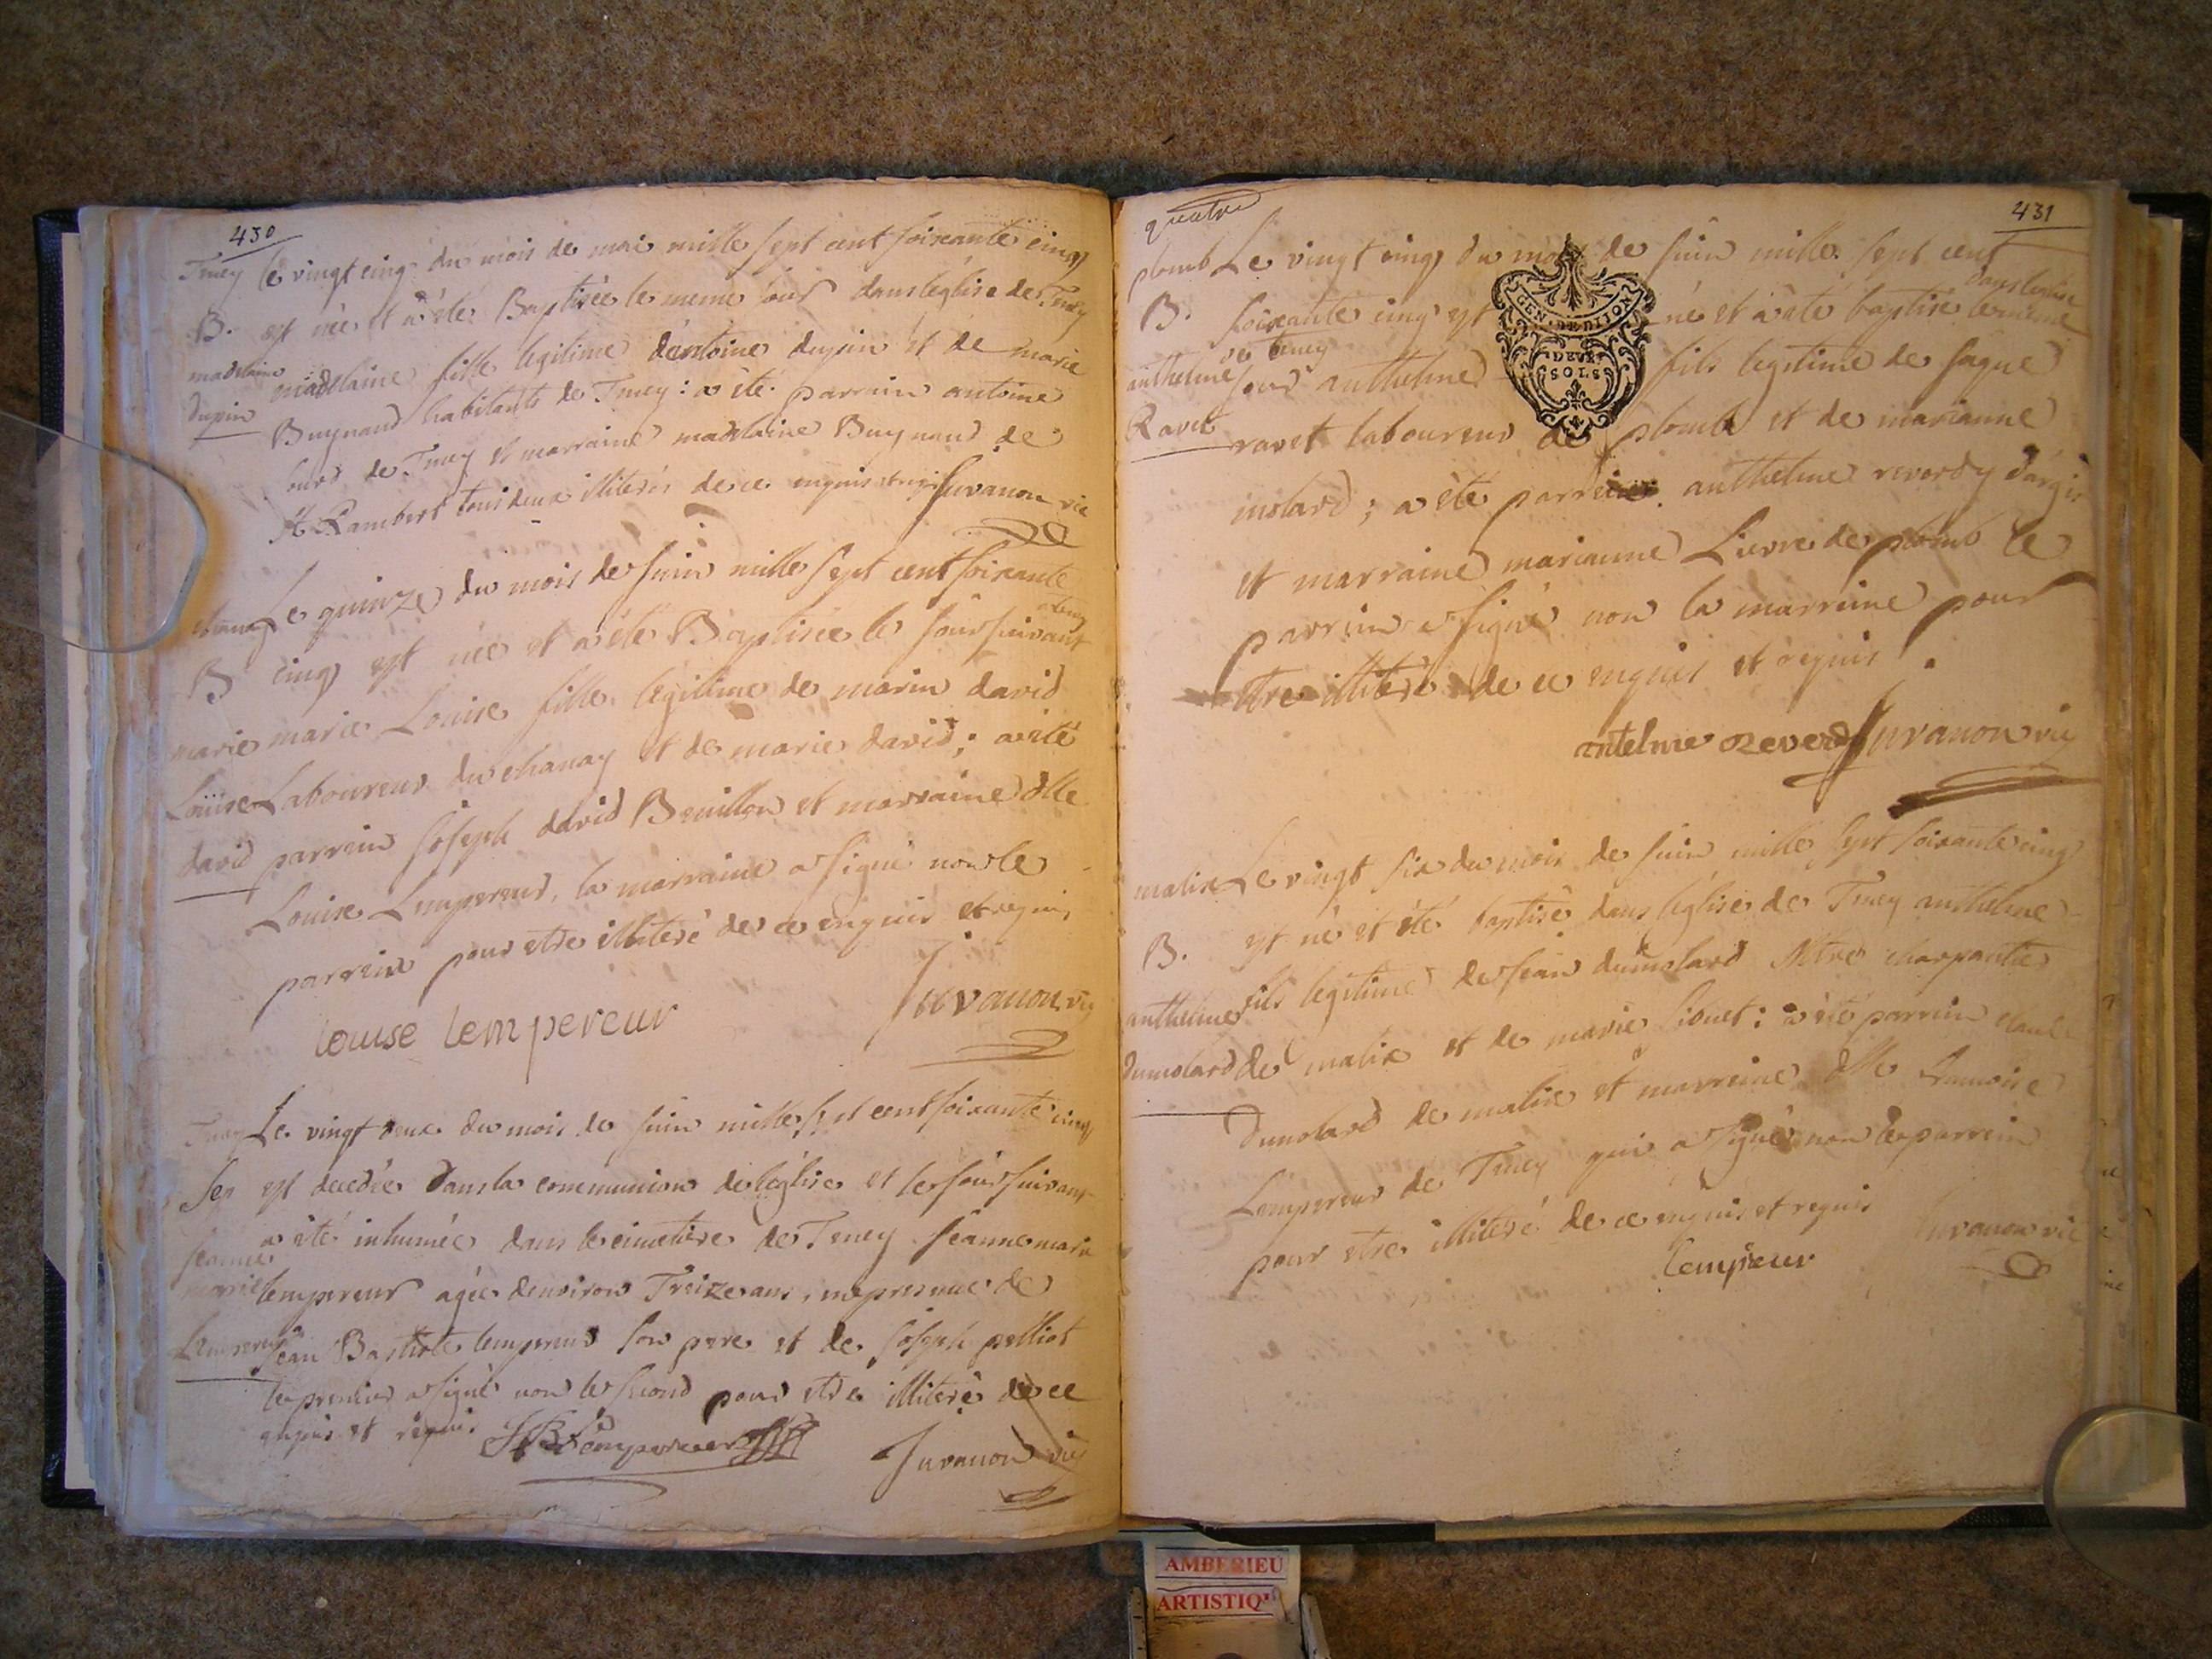 430
Tenay le vingt cinq du mois de mai mille sept cent soixante cinq
B. est née et a été Baptisée le meme jour dans léglise de Tenay
madelaine madelaine fille legitime d'antoine dupin et de marie
dupin Buynand habitants de Tenay : a été parrain antoine
de Tenay et marraine madelaine Buynand de
st Rambert tous deux illiterés de ce enquis et requis Juvanon vic
chanay Le quinze du mois de juin mille sept cent soixante
a tenay
B cinq est née et a été Baptisée le jour suivant
marie marie Louise fille légitime de marin david
Louise Laboureur du chanay et de marie david ; a été
david parrein Joseph david Bouillon et marraine dlle
Louise Lempereur, la marraine a signé non le
parrein pour etre illiteré de ce enquis et requis
louise lempereur
Juvanon vic
Tenay Le vingt deux du mois de juin mille sept cent soixante cinq
Sep est decedée dans la communion de léglise et le jour suivant
a été inhumée dans le cimetiere de Tenay jeanne marie
jeanne
marie lempereur agée denviron Treize ans, en presence de
Lempereur jean Baptiste lempereur son pere et de Joseph polliet
le premier a signé non le second pour etre illiteré de ce
enquis et requis. JB Lempereur
Juvanon vic
quatre
431
plomb Le vingt cinq du mois de juin mille sept cent
dans leglise
B. soixante cinq est né et a été baptisé le meme
de tenay
anthelme jour anthelme fils legitime de jaque
GEN. DE DIJON
DEUX
SOLS
Ravet ravet laboureur de plomb et de marianne
molard ; a été parrein anthelme reverdy d'argis
et marraine marianne Lievre de plomb le
parrein a signé non la marreine pour
etre illiteré de ce enquis et requis.
antelme Reverdy Juvanon vic
malix Le vingt six du mois de juin mille sept soixante cinq
B. est né et été baptisé dans l'église de Tenay anthelme
anthelme fils legitime de jean dumolard Mtre charpantier
dumolard de malix et de marie : a été parrein claude
dumolard de malix et marreine dlle francoise
Lempereur de Tenay qui a signé non le parrein
pour etre illiteré de ce enquis et requis Juvanon vic
lempereur
AMBERIEU
ARTISTIQ